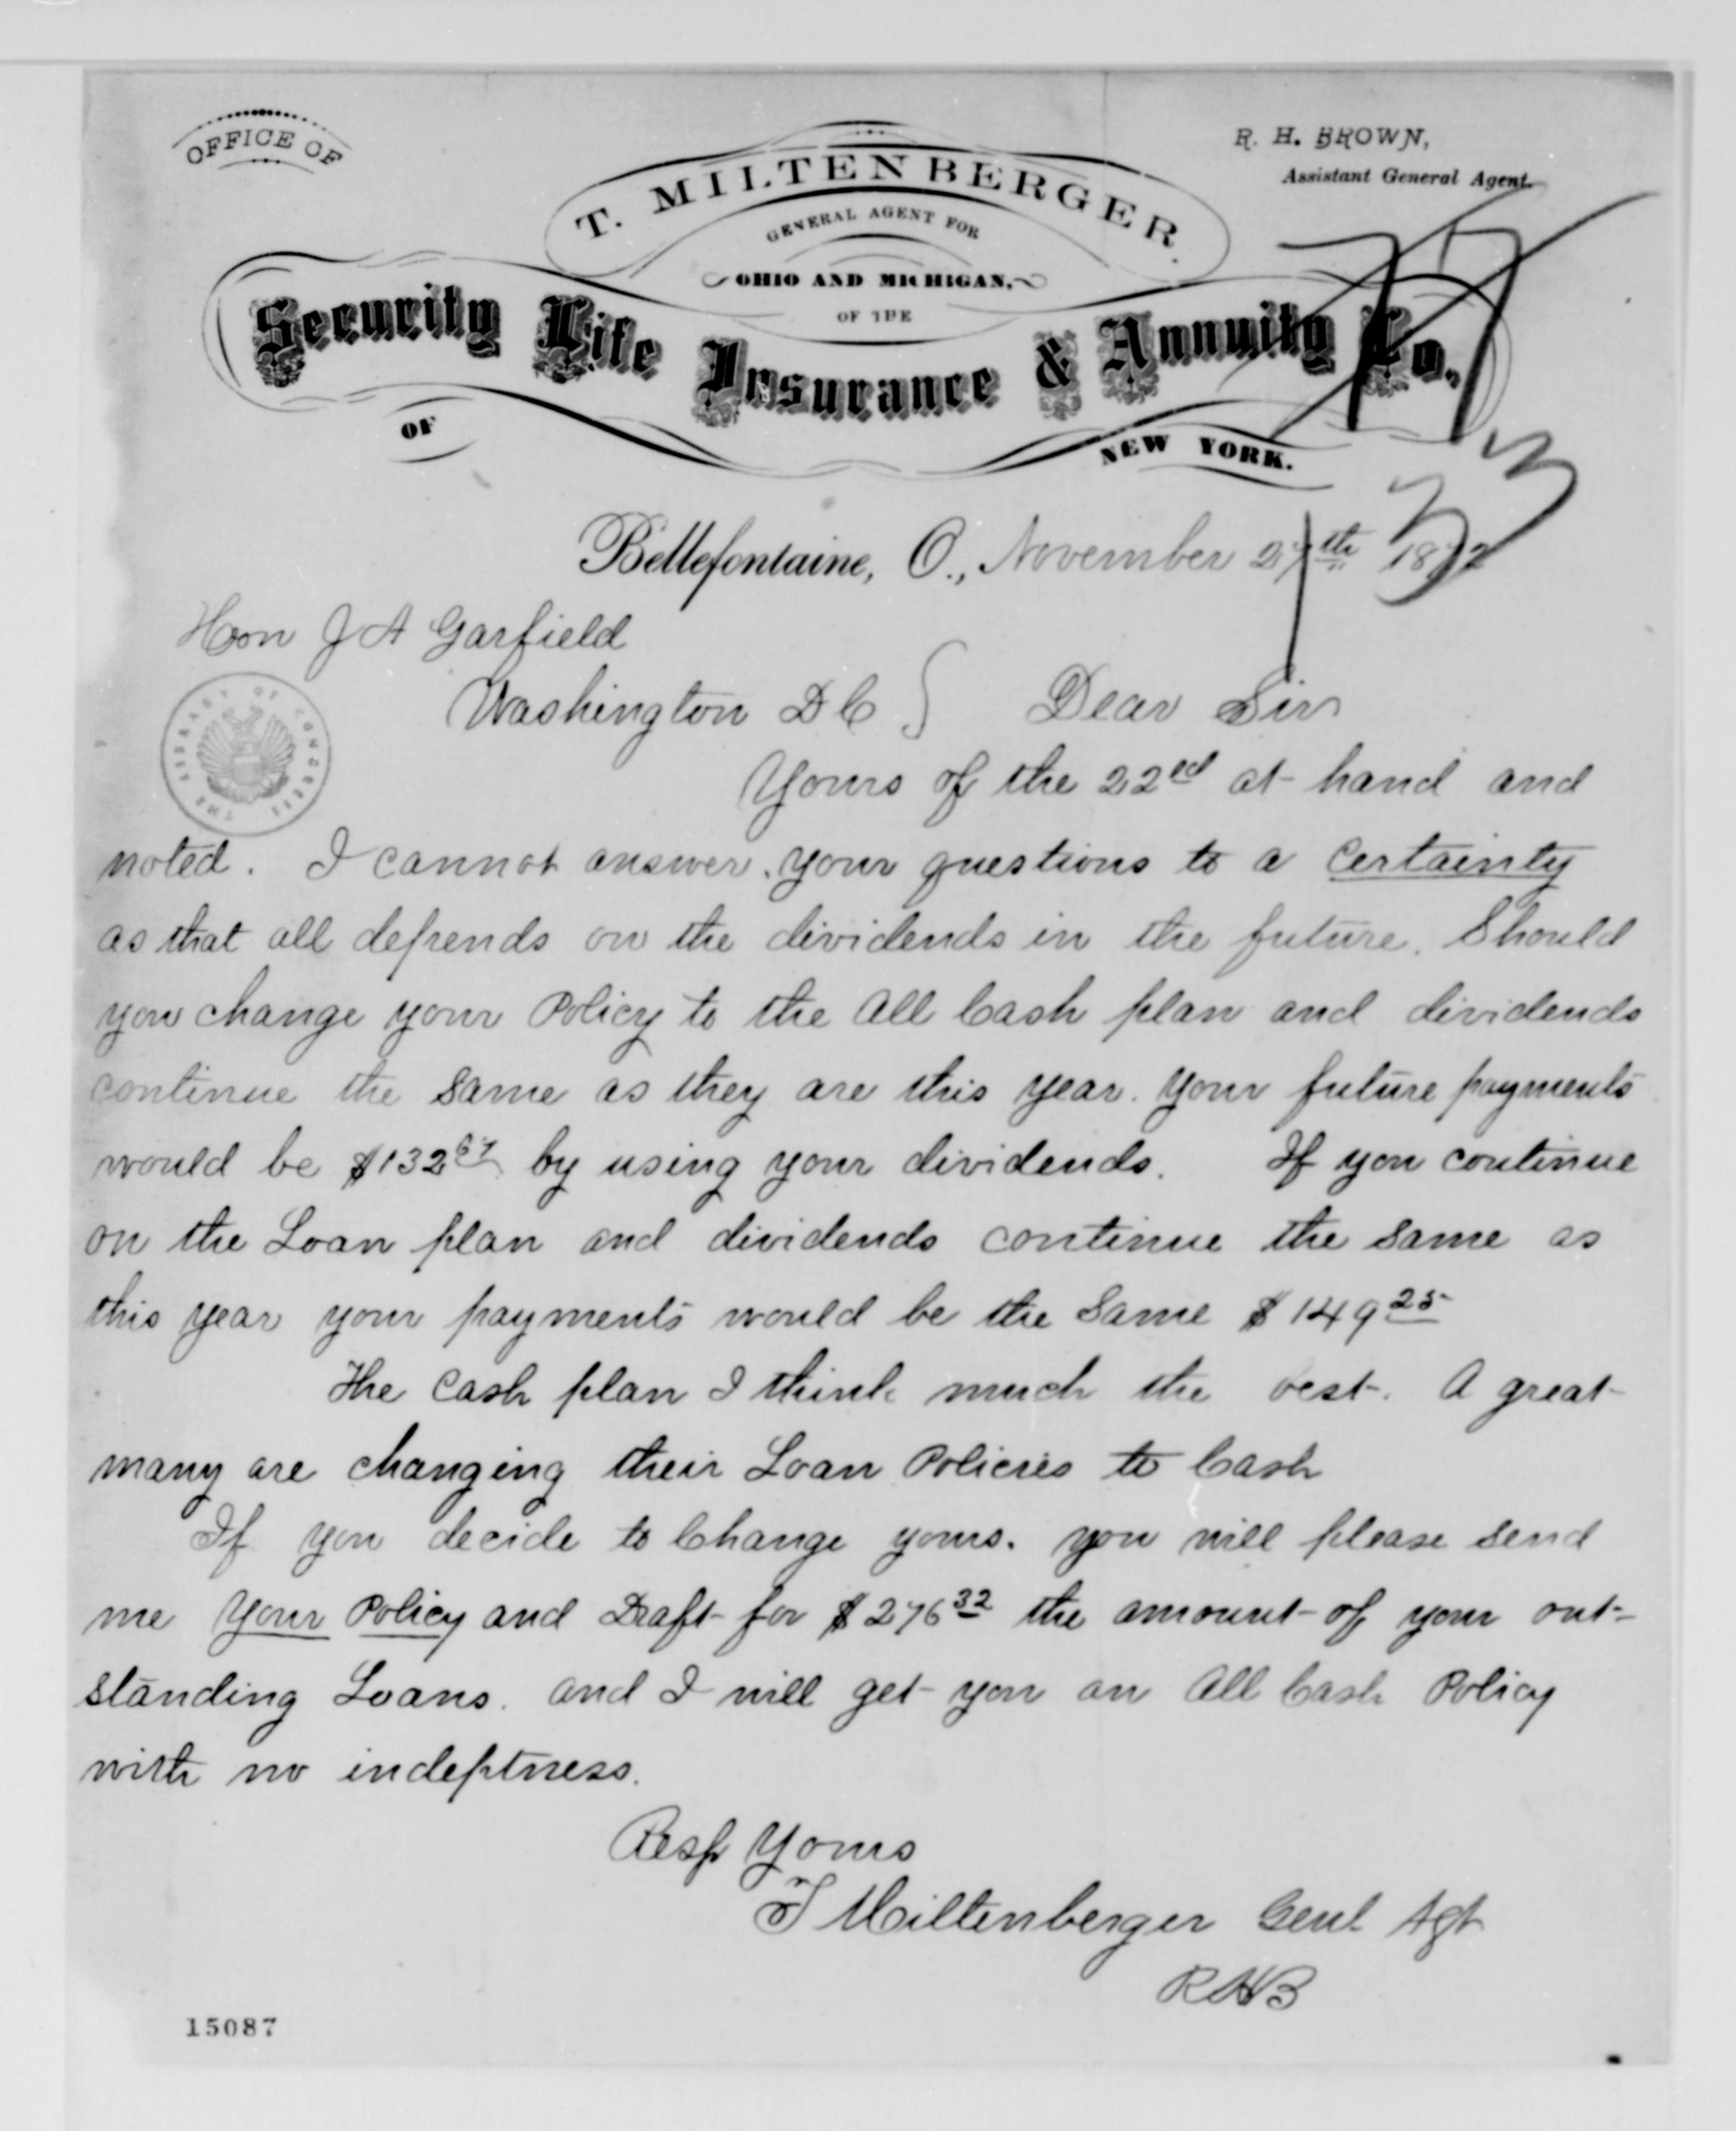 OFFICE OF
T. MILTENBERGER.
GENERAL AGENT FOR
OHIO AND MICHIGAN,
OF THE
R. H. BROWN,
Assistant General Agent.
Security Life Insurance & Annuity Co.,
OF NEW YORK.
Bellefontaine, O., November 27th 1872
Hon J A Garfield
Washington D C } Dear Sir
Yours of the 22ed at hand and
noted. I cannot answer your questions to a certainty
as that all depends on the dividends in the future. Should
you change your Policy to the All Cash plan and dividends
continue the same as they are this year. your future payments
would be $132 67 by using your dividends. If you continue
on the Loan plan and dividends continue the same as
this year your payments would be the same $149 25
The Cash plan I think much the best. A great
many are changing their Loan Policies to Cash
If you decide to Change yours. you will please send
me your Policy and Draft for $276 32 the amount of your out-
standing Loans. and I will get you an All Cash Policy
with no indeptness.
Resp Yours
T Miltenberger Genl Agt
RHB
THE LIBRARY OF CONGRESS
15087